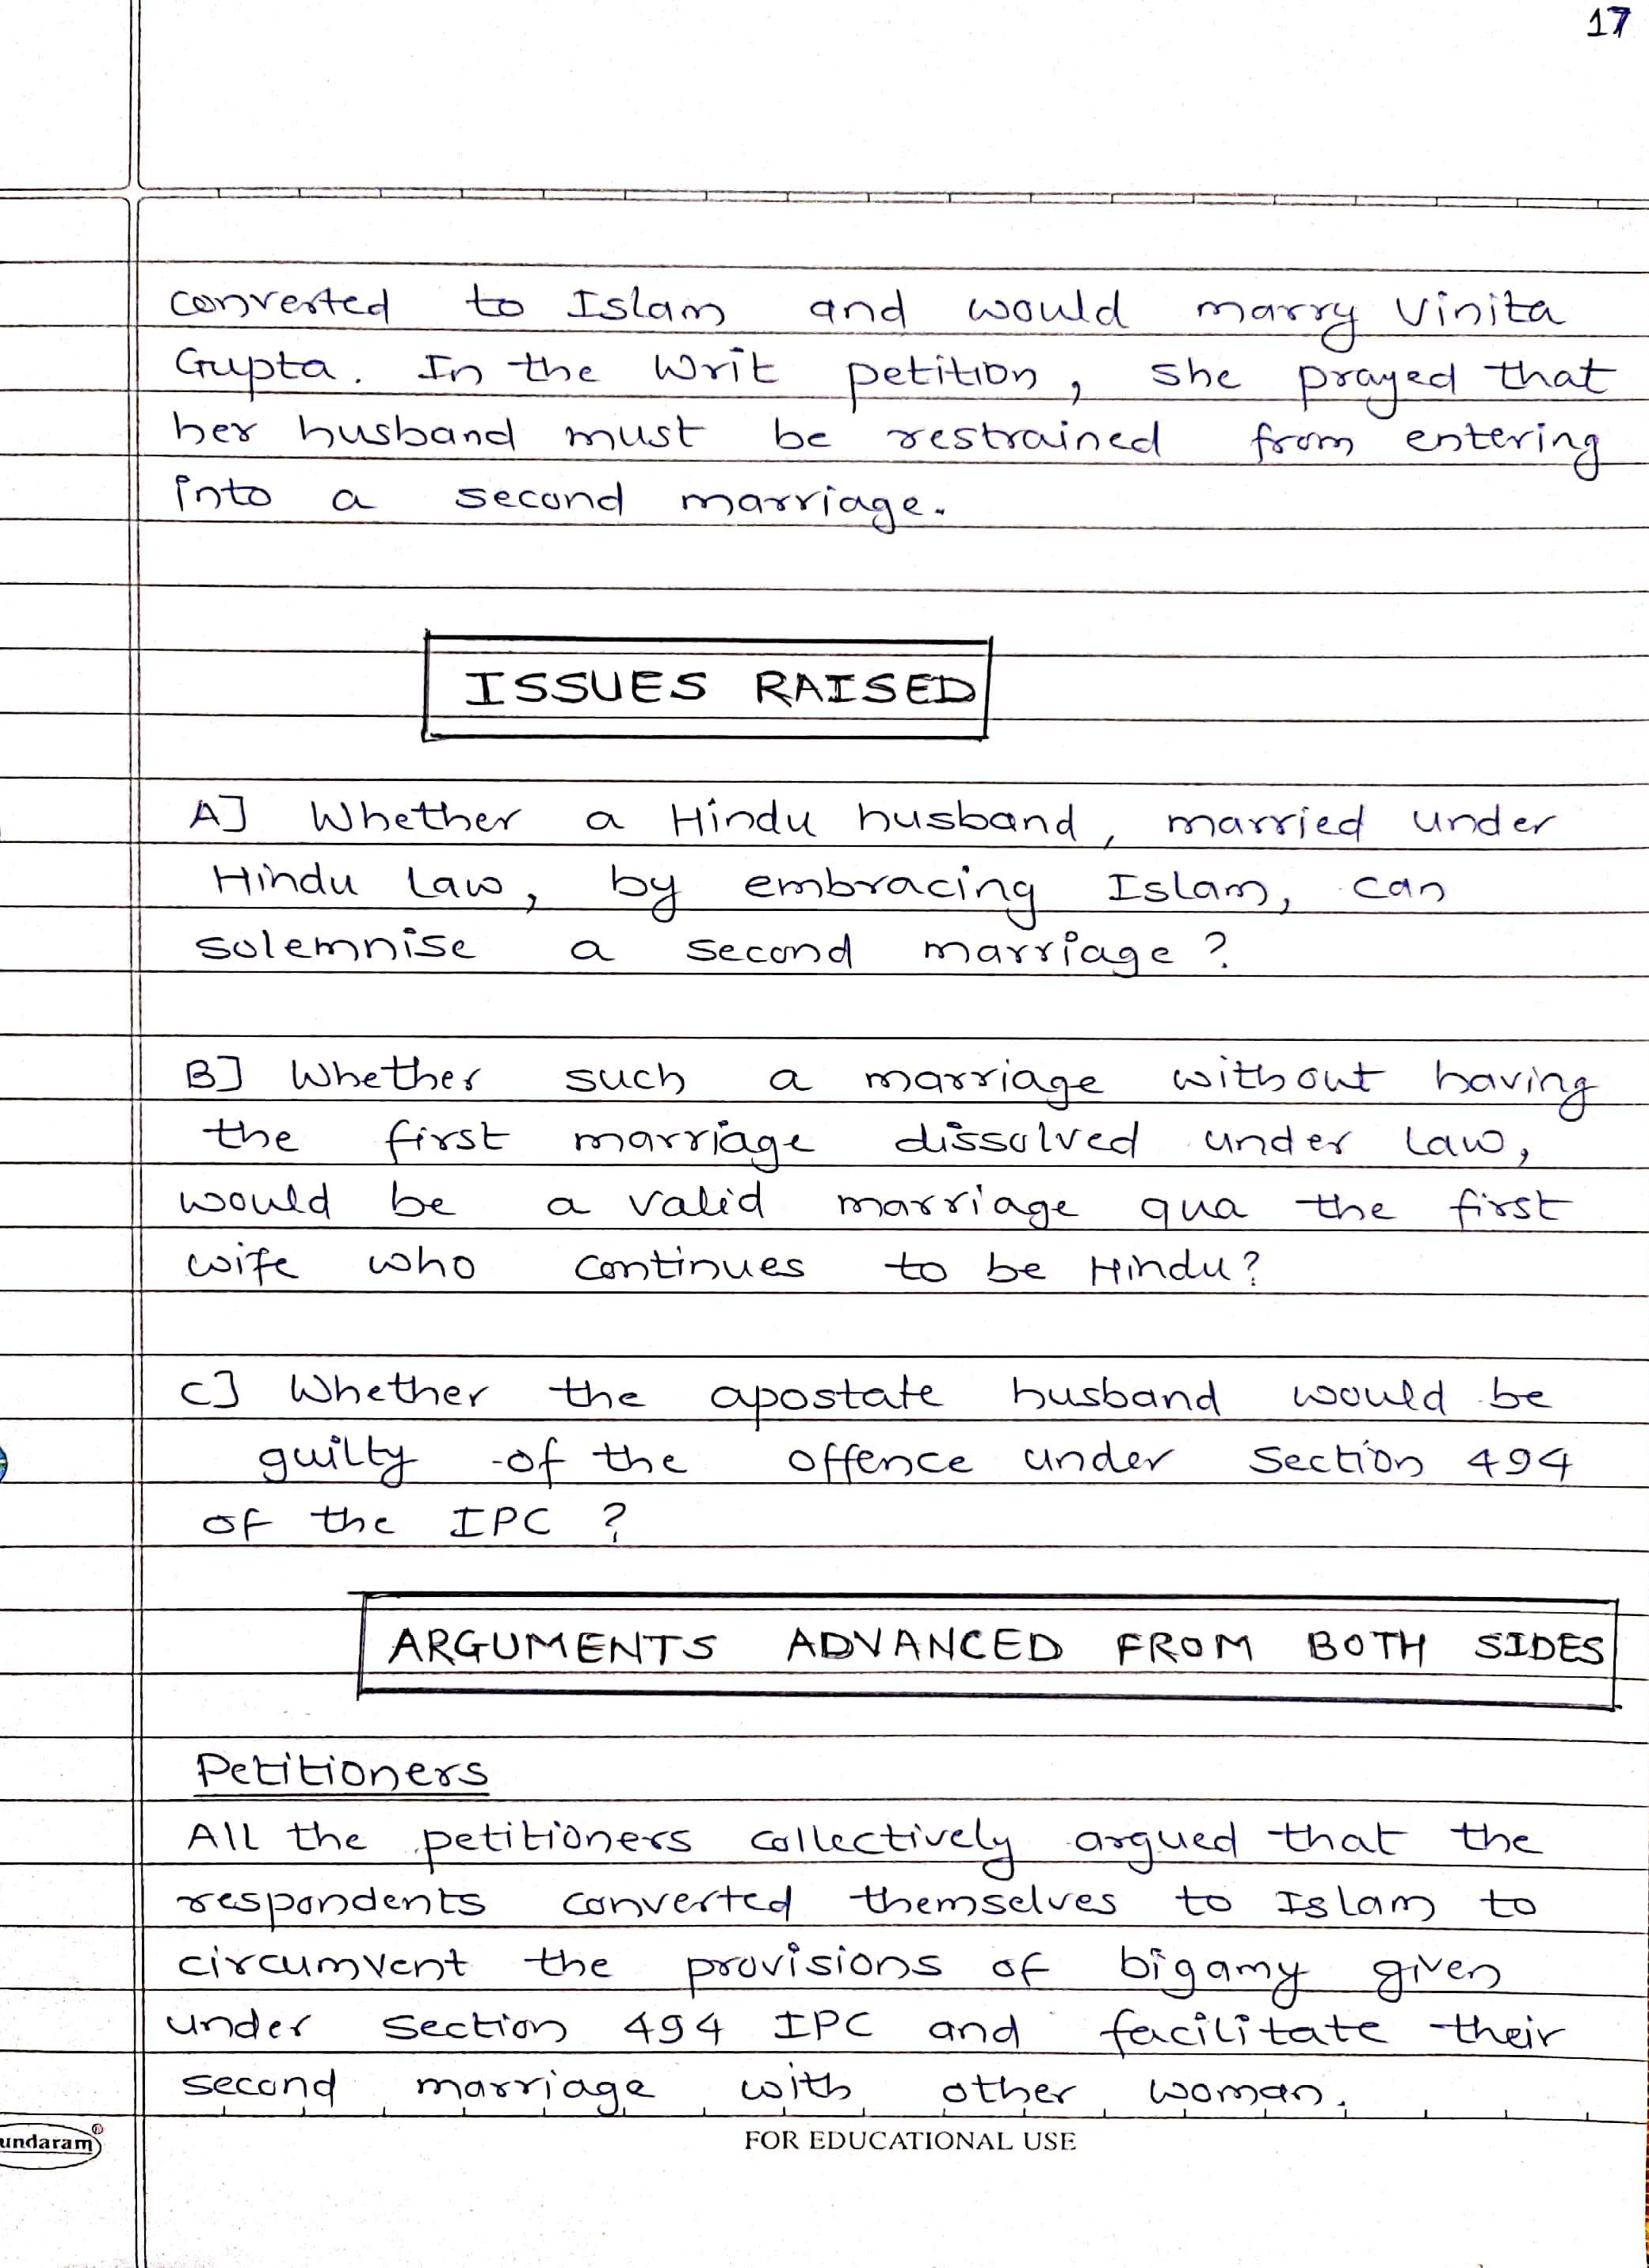 17
converted to Islam and would marry Vinita
Gupta. In the Writ petition, she prayed that
her husband must be restrained from entering
into a second marriage.
ISSUES RAISED
A] Whether a Hindu husband, married under
Hindu Law, by embracing Islam, can
solemnise a second marriage?
B] Whether such a marriage without having
the first marriage dissolved under Law,
would be a valid marriage qua the first
wife who continues to be Hindu?
C] Whether the apostate husband would be
guilty of the offence under Section 494
of the IPC ?
ARGUMENTS ADVANCED FROM BOTH SIDES
Petitioners
All the petitioners collectively argued that the
respondents converted themselves to Islam to
circumvent the provisions of bigamy given
under Section 494 IPC and facilitate their
second marriage with other woman.
undaram
FOR EDUCATIONAL USE